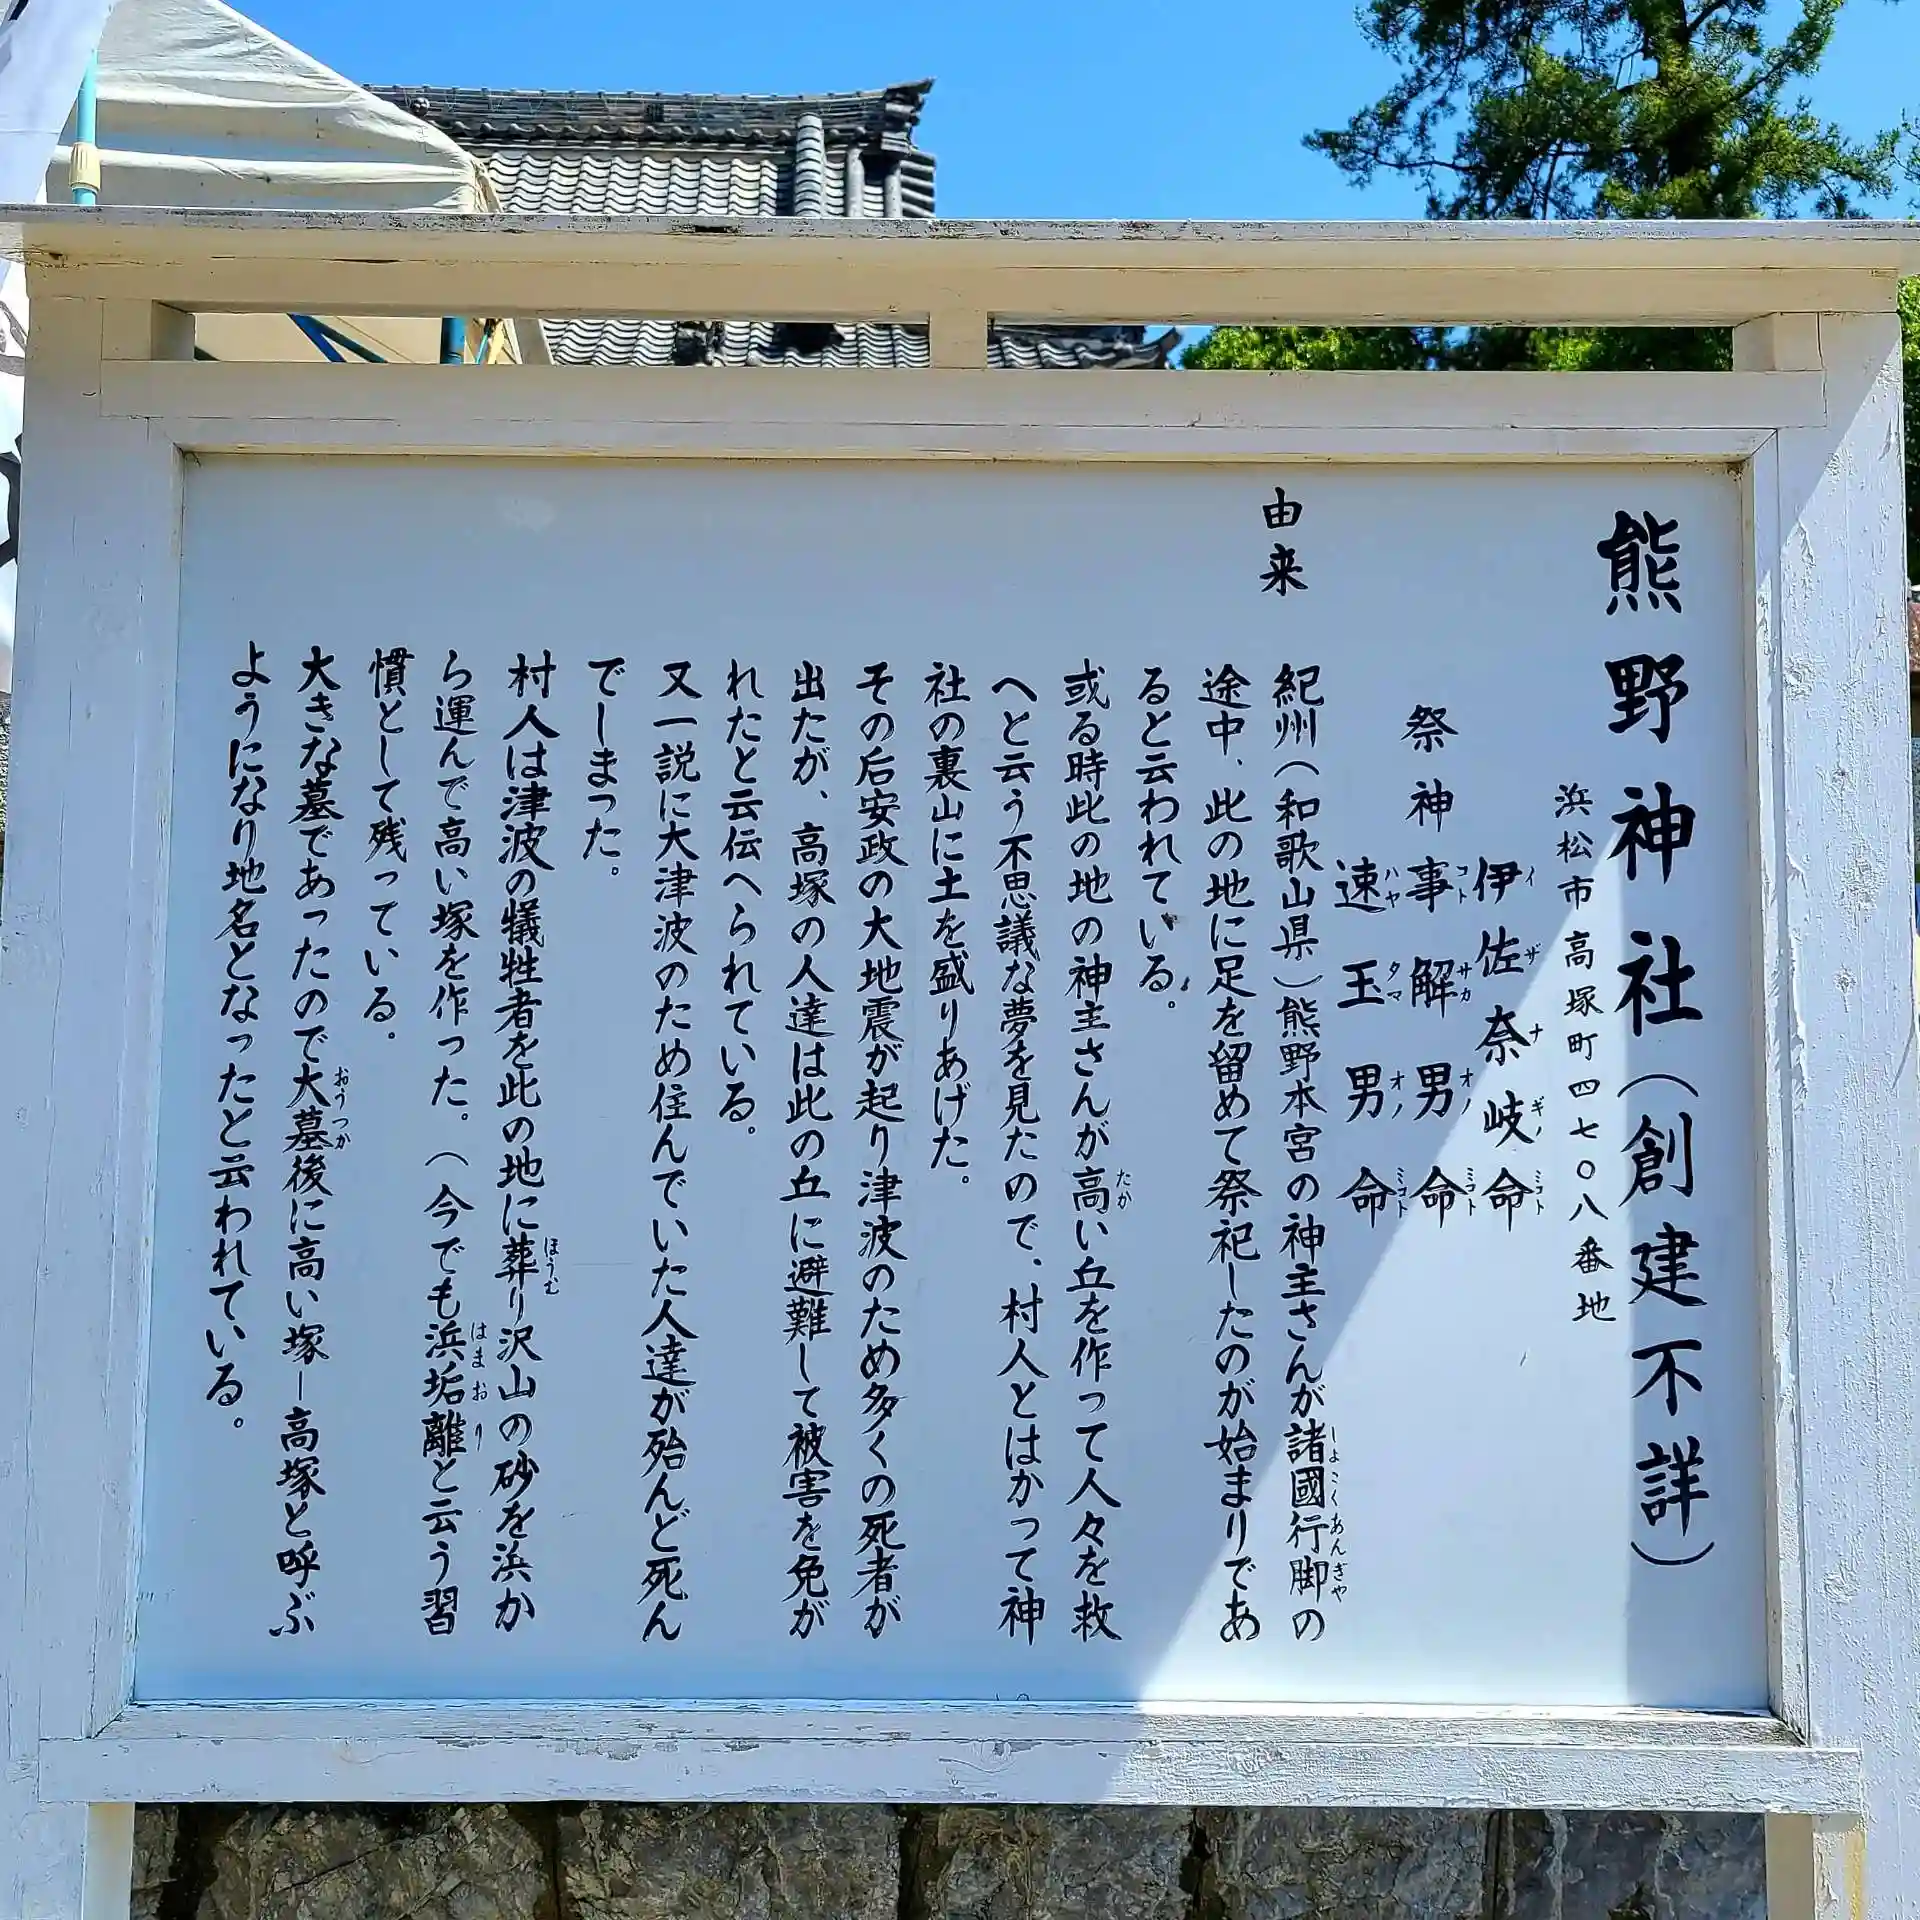 熊野神社（創建不詳）
浜松市高塚町四七〇八番地
伊佐奈岐命
イザナギノミコト
祭神事解男命
コトサカオノミコト
速玉男命
ハヤタマオノミコト
由来
紀州（和歌山県）熊野本宮の神主さんが諸國行脚の
しよこくあんぎや
途中、此の地に足を留めて祭祀したのが始まりであ
ると云われている。
或る時此の地の神主さんが高い丘を作って人々を救
たか
へと云う不思議な夢を見たので、村人とはかって神
社の裏山に土を盛りあげた。
その后安政の大地震が起り津波のため多くの死者が
出たが、高塚の人達は此の丘に避難して被害を免が
れたと云伝へられている。
又一説に大津波のため住んでいた人達が殆んど死ん
でしまった。
村人は津波の犠牲者を此の地に葬り沢山の砂を浜か
ほうむ
ら運んで高い塚を作った。（今でも浜垢離と云う習
はまおり
慣として残っている。
大きな墓であったので大墓後に高い塚－高塚と呼ぶ
おうつか
ようになり地名となったと云われている。